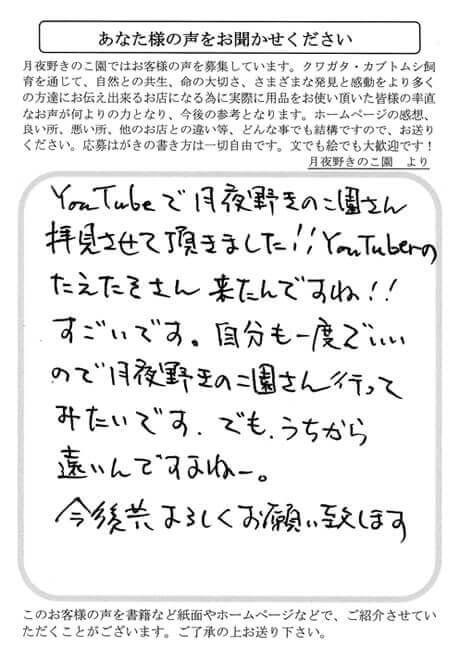 あなた様の声をお聞かせください
月夜野きのこ園ではお客様の声を募集しています。クワガタ・カブトムシ飼
育を通じて、自然との共生、命の大切さ、さまざまな発見と感動をより多く
の方達にお伝え出来るお店になる為に実際に用品をお使い頂いた皆様の率直
なお声が何よりの力となり、今後の参考となります。ホームページの感想、
良い所、悪い所、他のお店との違い等、どんな事でも結構ですので、お送り
ください。応募はがきの書き方は一切自由です。文でも絵でも大歓迎です！
月夜野きのこ園　より
YouTubeで月夜野きのこ園さん
拝見させて頂きました!!YouTuberの
たえたそさん 来たんですね!!
すごいです。自分も一度でいい
ので月夜野きのこ園さん行って
みたいです. でも、うちから
遠いんですよねー。
今後共よろしくお願い致します
このお客様の声を書籍など紙面やホームページなどで、ご紹介させてい
ただくことがございます。ご了承の上お送り下さい。